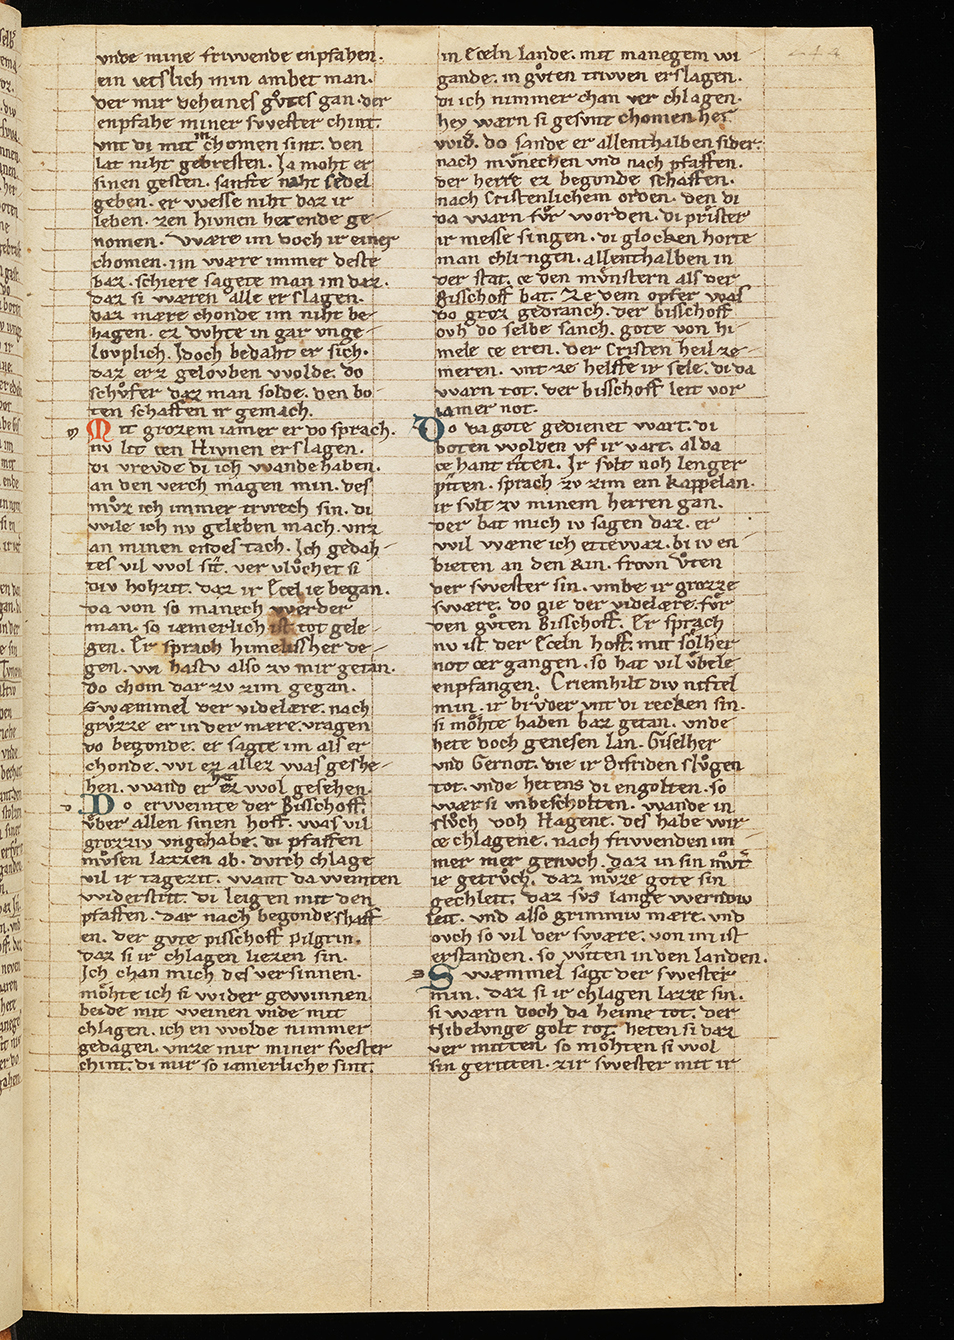 vnde mine frivvende enpfahen.
ein ietslich min ambet man.
der mir deheines gůtes gan. der
enpfahe miner svvester chint.
vnt di mit in chomen sint. den
lat niht gebresten. Ja moht er
sinen gesten. sanfte naht sedel
geben. er vvesse niht daz ir
leben. zen hivnen het ende ge-
nomen. VVære im doch ir einer
chomen. im vvære immer deste
baz. schiere sagete man im daz.
daz si vværen alle erslagen.
daz mære chonde im niht be-
hagen. ez dvhte in gar vnge-
lovplich. Jdoch bedaht er sich.
daz erz gelovben vvolde. do
schůfer daz man solde. den bo-
ten schaffen ir gemach.
Mit grozem iamer er do sprach.
nv lit cen Hivnen erslagen.
di vrevde di ich vvande haben.
an den verch magen min. des
můz ich immer trvrech sin. di
vvile ich nv geleben mach. vnz
an minen endes tach. Ich gedah-
tes vil vvol sit. ver vlůchet si
div hohzit. daz ir Ecel ie began.
da von so manech vverder
man. so iæmerlich ist tot gele-
gen. Er sprach himelissher de-
gen. vvi hastv also zv mir getan.
do chom dar zv zim gegan.
Svvæmmel der videlære. nach
grůzze er in der mære vragen
do begonde. er sagte im als er
chonde. vvi ez allez vvas geshe-
hen. vvand er het ez vvol gesehen.
Do ervveinte der Bisschoff.
ůber allen sinen hoff. vvas vil
grozziv vngehabe. di pfaffen
můsen lazzen ab. dvrch chlage
vil ir tagezit. vvant da vveinten
vviderstrit. di leigen mit den
pfaffen. dar nach begonde shaff
en. der gvte pisschoff Pilgrin.
daz si ir chlagen liezen sin.
Jch chan mich des versinnen.
mohte ich si vvider gevvinnen.
beide mit vveinen vnde mit
chlagen. ich en vvolde nimmer
gedagen. vnze mir miner svester
chint. di mir so iamerliche sint.
in Eceln lande. mit manegem vvi
gande. in gůten trivven erslagen.
di ich nimmer chan ver chlagen.
hey vværn si gesvnt chomen her
vvid. do sande er allenthalben sider.
nach mvnechen vnd nach pfaffen.
der herre er begonde schaffen.
nach Cristenlichem orden. den di
da vvarn fůr vvorden. di prister
ir messe singen. di glocken horte
man chlingen. allenthalben in
der stat. ce den mvnstern als der
Bisschoff bat. Ze dem opfer vvas
do groz gedranch. der bisschoff
ovh do selbe sanch. gote von hi-
mele ce eren. der Cristen heil ze-
meren. vnt ze helffe ir sele. di da
vvarn tot. der bisschoff leit vor
iamer not.
Do da gote gedienet vvart. di
boten vvolden vf ir vart. al da
ce hant riten. Jr svlt noh lenger
piten. sprach zv zim ein kappelan.
ir svlt zv minem herren gan.
der bat mich iv sagen daz. er
vvil vvæne ich ettevvaz. bi iv en-
bieten an den Rin. frovn Vten
der svvester sin. vmbe ir grozze
svvære. do gie der videlære. fůr
den gůten Bisschoff. Er sprach
nv ist der Eceln hoff. mit solher
not cergangen. so hat vil ůbele
enpfangen. Criemhilt div niftel
min. ir brůder vnt di recken sin.
si mohte haben baz getan. vnde
hete doch genesen lan. Giselher
vnd Gernot. die ir Sifriden slůgen
tot. vnde hetens di engolten. so
vvær si vnbescholten. vvande in
slůch doh Hagene. des habe vvir
ce chlagene. nach frivvenden im
mer mer genvch. daz in sin mvter
ie getrůch. daz můze gote sin
gechleit. daz svs lange vverndiv
leit. vnd also grimmiv mære. vnd
ovch so vil der svvære. von im ist
erstanden. so vviten in den landen.
Svvæmmel sagt der svvester
min. daz si ir chlagen lazze sin.
si vværn doch da heime tot. der
Nibelvnge golt rot. heten si daz
ver miten. so mohten si vvol
sin geriten. zir svvester mit ir